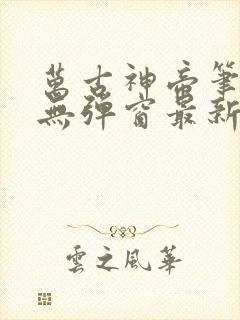 萬古神帝筆
無彈窗最新
雲之風華